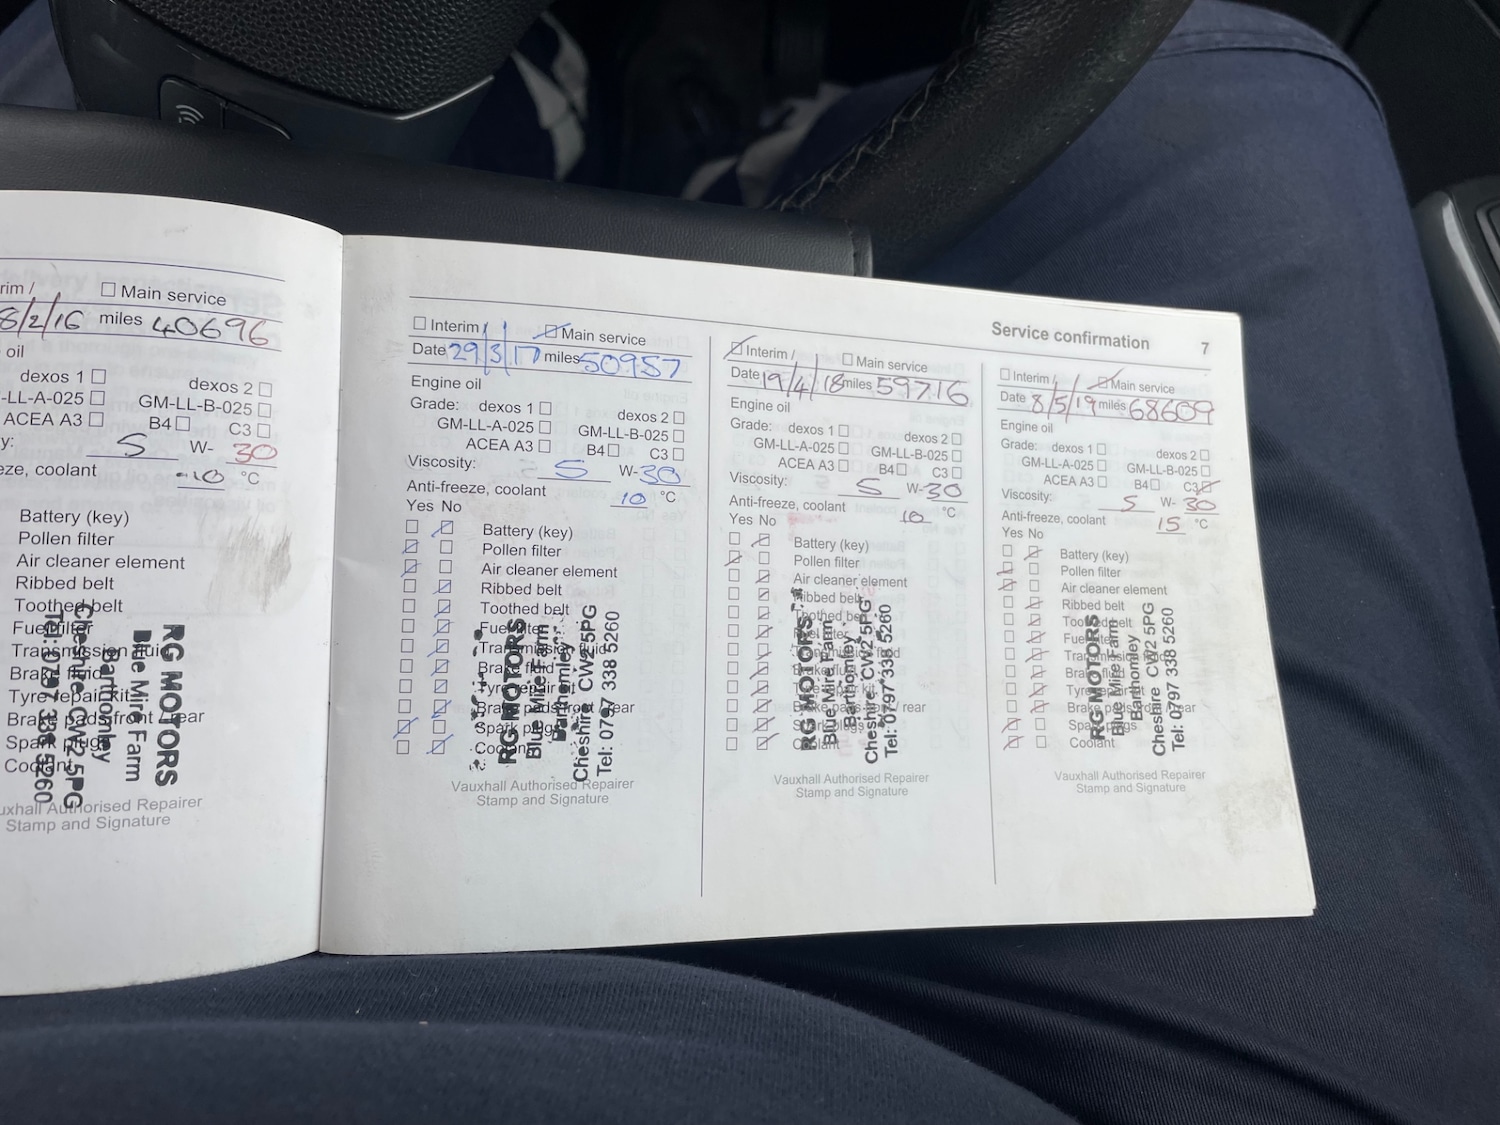 rim / Main service
8/2/16 miles 40696
oil
dexos 1 dexos 2
-LL-A-025 GM-LL-B-025
ACEA A3 B4 C3
y: 5 W-30
eze, coolant -10 °C
Battery (key)
Pollen filter
Air cleaner element
Ribbed belt
Toothed belt
Fuel filter
Transmission fluid
Brake fluid
Tyre repair kit
Brake pads front / rear
Spark plugs
Coolant
RG MOTORS
Blue Mire Farm
Barthomley
Cheshire CW2 5PG
Tel: 0797 338 5260
uxhall Authorised Repairer
Stamp and Signature
Service confirmation 7
Interim / Main service
Date 29/3/17 miles 50957
Engine oil
Grade: dexos 1 dexos 2
GM-LL-A-025 GM-LL-B-025
ACEA A3 B4 C3
Viscosity: 5 W-30
Anti-freeze, coolant 10 °C
Yes No
Battery (key)
Pollen filter
Air cleaner element
Ribbed belt
Toothed belt
Fuel filter
Transmission fluid
Brake fluid
Tyre repair kit
Brake pads front / rear
Spark plugs
Coolant
RG MOTORS
Blue Mire Farm
Barthomley
Cheshire CW2 5PG
Tel: 0797 338 5260
Vauxhall Authorised Repairer
Stamp and Signature
Interim / Main service
Date 19/4/18 miles 59716
Engine oil
Grade: dexos 1 dexos 2
GM-LL-A-025 GM-LL-B-025
ACEA A3 B4 C3
Viscosity: 5 W-30
Anti-freeze, coolant 10 °C
Yes No
Battery (key)
Pollen filter
Air cleaner element
Ribbed belt
Toothed belt
Fuel filter
Transmission fluid
Brake fluid
Tyre repair kit
Brake pads front / rear
Spark plugs
Coolant
RG MOTORS
Blue Mire Farm
Barthomley
Cheshire CW2 5PG
Tel: 0797 338 5260
Vauxhall Authorised Repairer
Stamp and Signature
Interim / Main service
Date 8/5/19 miles 68609
Engine oil
Grade: dexos 1 dexos 2
GM-LL-A-025 GM-LL-B-025
ACEA A3 B4 C3
Viscosity: 5 W-30
Anti-freeze, coolant 15 °C
Yes No
Battery (key)
Pollen filter
Air cleaner element
Ribbed belt
Toothed belt
Fuel filter
Transmission fluid
Brake fluid
Tyre repair kit
Brake pads front / rear
Spark plugs
Coolant
RG MOTORS
Blue Mire Farm
Barthomley
Cheshire CW2 5PG
Tel: 0797 338 5260
Vauxhall Authorised Repairer
Stamp and Signature